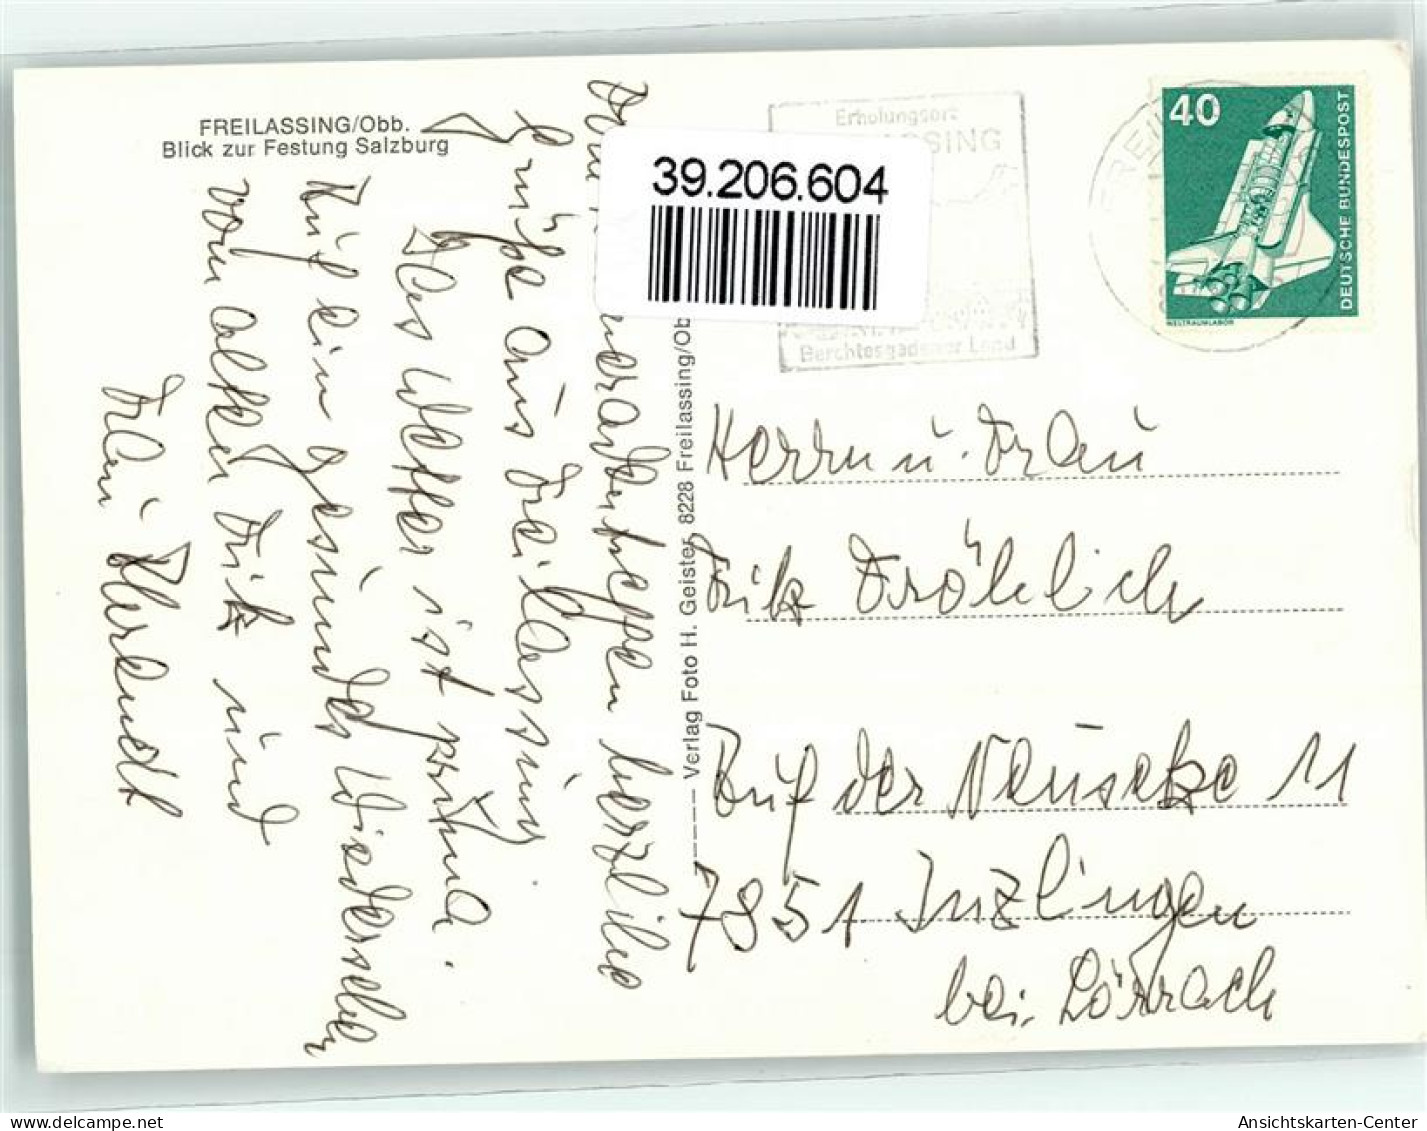 FREILASSING/Obb.
Blick zur Festung Salzburg
39.206.604
Erholungsort
SSING
Berchtesgadener Land
40
DEUTSCHE BUNDESPOST
WELTRAUMLABOR
Verlag Foto H. Geister, 8228 Freilassing/Ob
Vom
herzliche
Grüße aus Freilassing
Das Wetter ist prima.
Auf ein gesundes Wiedersehen
vom alten Fritz und
Frau
Herrn u. Frau
Fritz Fröhlich
Auf der Neusetze 11
7851 Inzlingen
bei Lörrach
delcampe.net
Ansichtskarten-Center